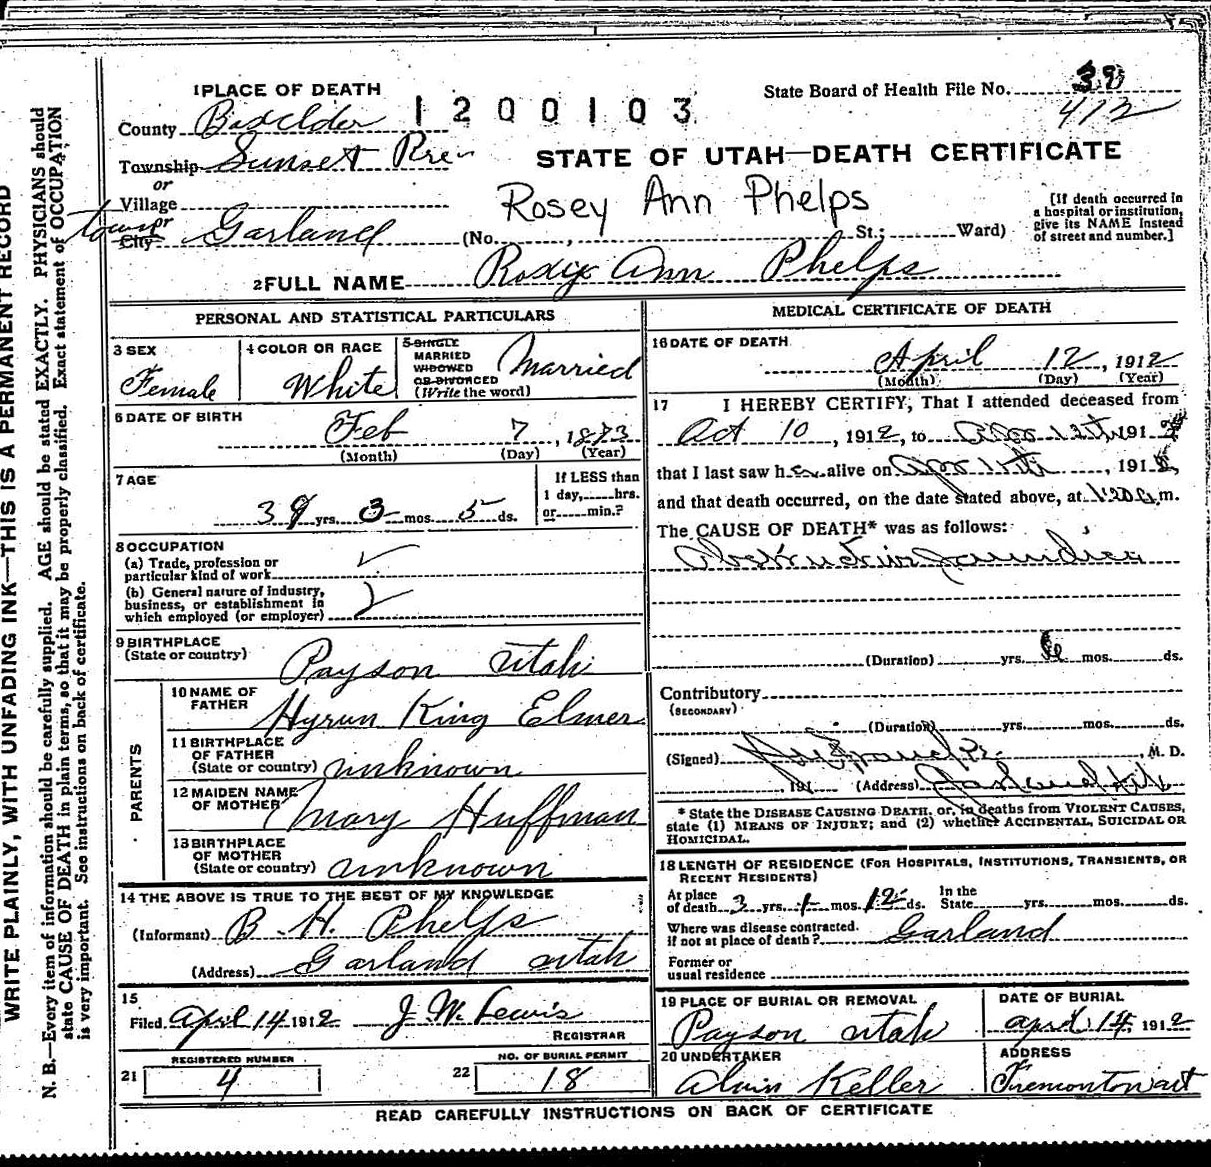 WRITE PLAINLY, WITH UNFADING INK—THIS IS A PERMANENT RECORD
N. B.—Every item of information should be carefully supplied. AGE should be stated EXACTLY. PHYSICIANS should
state CAUSE OF DEATH in plain terms, so that it may be properly classified. Exact statement of OCCUPATION
is very important. See instructions on back of certificate.
1 PLACE OF DEATH
1200103
State Board of Health File No. 38
412
County Boxelder
Township Sunset
or
Village
STATE OF UTAH—DEATH CERTIFICATE
Rosey Ann Phelps
[If death occurred in
a hospital or institution,
give its NAME instead
of street and number.]
town or
City Garland (No. , St.; Ward)
2 FULL NAME Ann Phelps
PERSONAL AND STATISTICAL PARTICULARS
3 SEX
Female
4 COLOR OR RACE
White
5 SINGLE
MARRIED
WIDOWED
OR DIVORCED
(Write the word)
Married
6 DATE OF BIRTH
Feb 7, 1873
(Month) (Day) (Year)
7 AGE
39 yrs. 3 mos. 5 ds.
If LESS than
1 day, hrs.
or min.?
8 OCCUPATION
(a) Trade, profession or
particular kind of work
(b) General nature of industry,
business, or establishment in
which employed (or employer)
9 BIRTHPLACE
(State or country)
Payson Utah
PARENTS
10 NAME OF
FATHER
Hyrum King Elmer
11 BIRTHPLACE
OF FATHER
(State or country) unknown
12 MAIDEN NAME
OF MOTHER
Mary Huffman
13 BIRTHPLACE
OF MOTHER
(State or country) unknown
14 THE ABOVE IS TRUE TO THE BEST OF MY KNOWLEDGE
(Informant) B. H. Phelps
(Address) Garland Utah
15
Filed April 14 1912 J. W. Lewis
REGISTRAR
REGISTERED NUMBER
21 4
NO. OF BURIAL PERMIT
22 18
MEDICAL CERTIFICATE OF DEATH
16 DATE OF DEATH
April 12, 1912
(Month) (Day) (Year)
17 I HEREBY CERTIFY, That I attended deceased from
Oct 10, 1912, to Apr 12th 191
that I last saw her alive on Apr , 191
and that death occurred, on the date stated above, at m.
The CAUSE OF DEATH* was as follows:
Obstructive Jaundice
(Duration) yrs. mos. ds.
Contributory
(SECONDARY)
(Duration) yrs. mos. ds.
(Signed) , M. D.
, 191 (Address) Garland Utah
* State the DISEASE CAUSING DEATH, or, in deaths from VIOLENT CAUSES,
state (1) MEANS OF INJURY; and (2) whether ACCIDENTAL, SUICIDAL OR
HOMICIDAL.
18 LENGTH OF RESIDENCE (FOR HOSPITALS, INSTITUTIONS, TRANSIENTS, OR
RECENT RESIDENTS)
At place
of death 3 yrs. 1 mos. 12 ds.
In the
State yrs. mos. ds.
Where was disease contracted.
if not at place of death? Garland
Former or
usual residence
19 PLACE OF BURIAL OR REMOVAL
Payson Utah
DATE OF BURIAL
April 14, 1912
20 UNDERTAKER
Alvin Keller
ADDRESS
Tremonton ut
READ CAREFULLY INSTRUCTIONS ON BACK OF CERTIFICATE